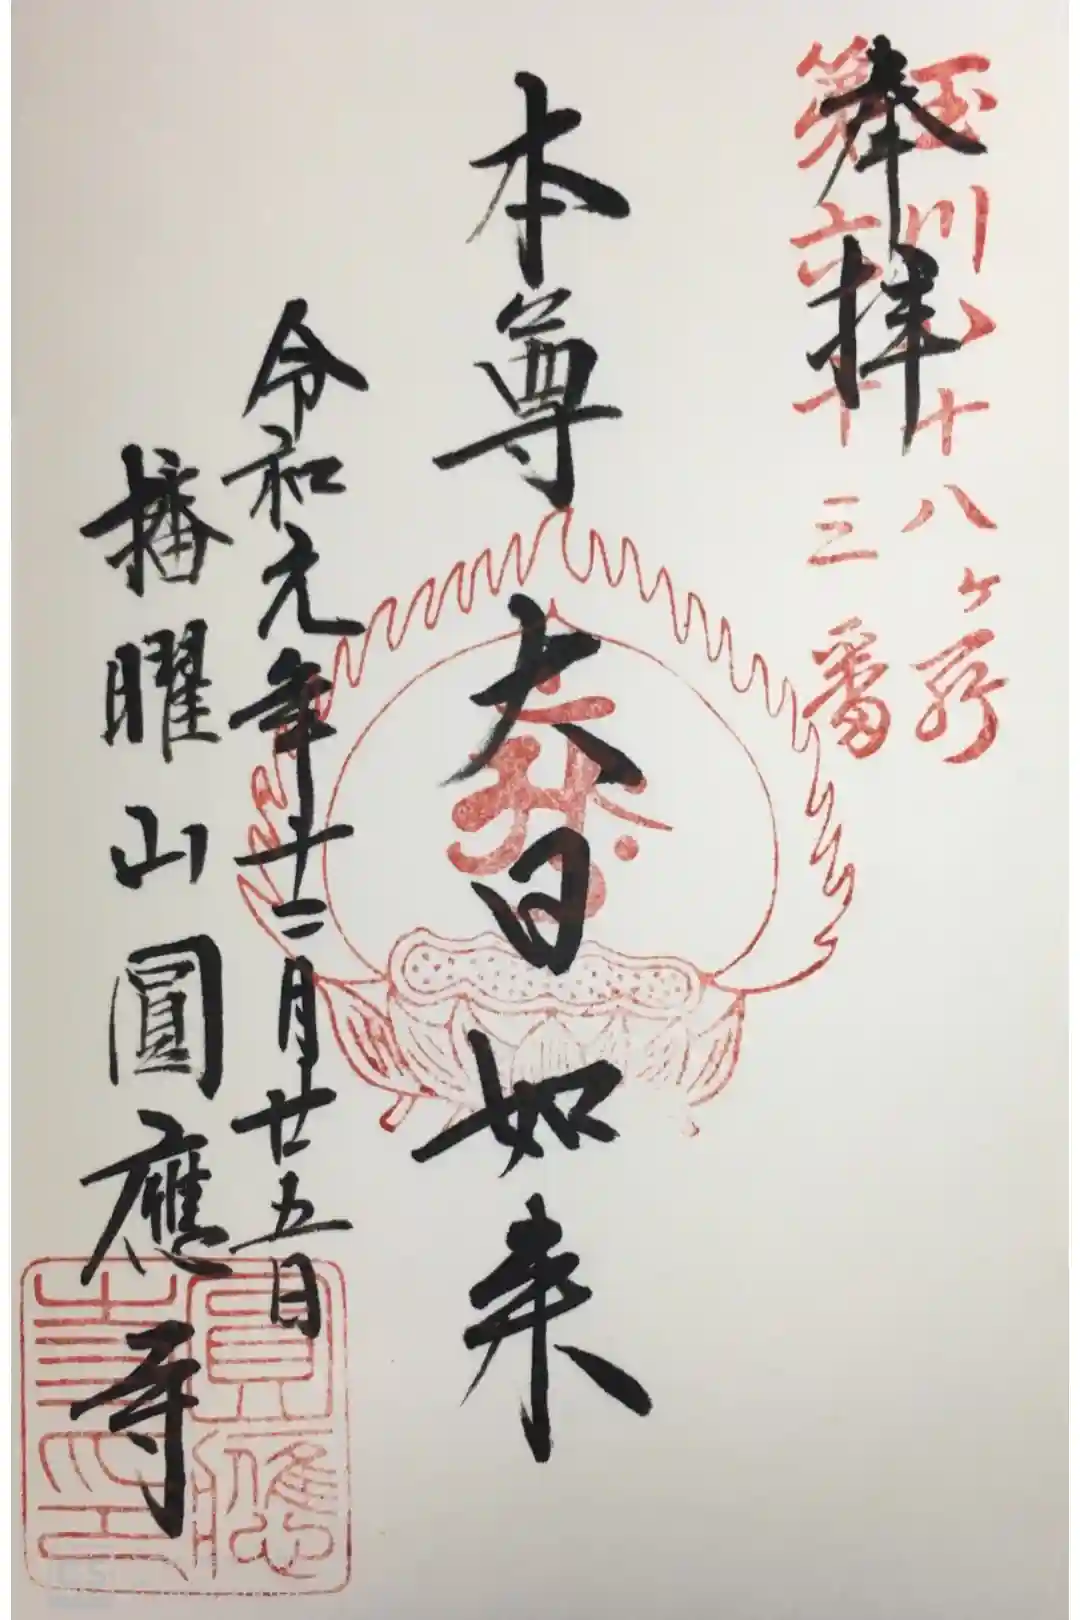 玉川八十八ヶ所
第六十三番
奉拝
本尊 大日如来
令和元年十二月廿五日
播曜山圓應寺
圓應
寺印